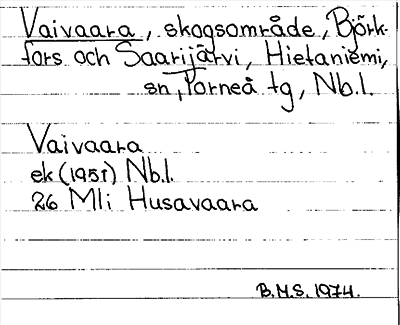 Vaivaara, skogsområde, Björk-
fors och Saarijärvi, Hietaniemi,
sn, Torneå tg, Nb.l.
Vaivaara
ek (1951) Nb.l.
26 Mli Husavaara
B.M.S. 1974.